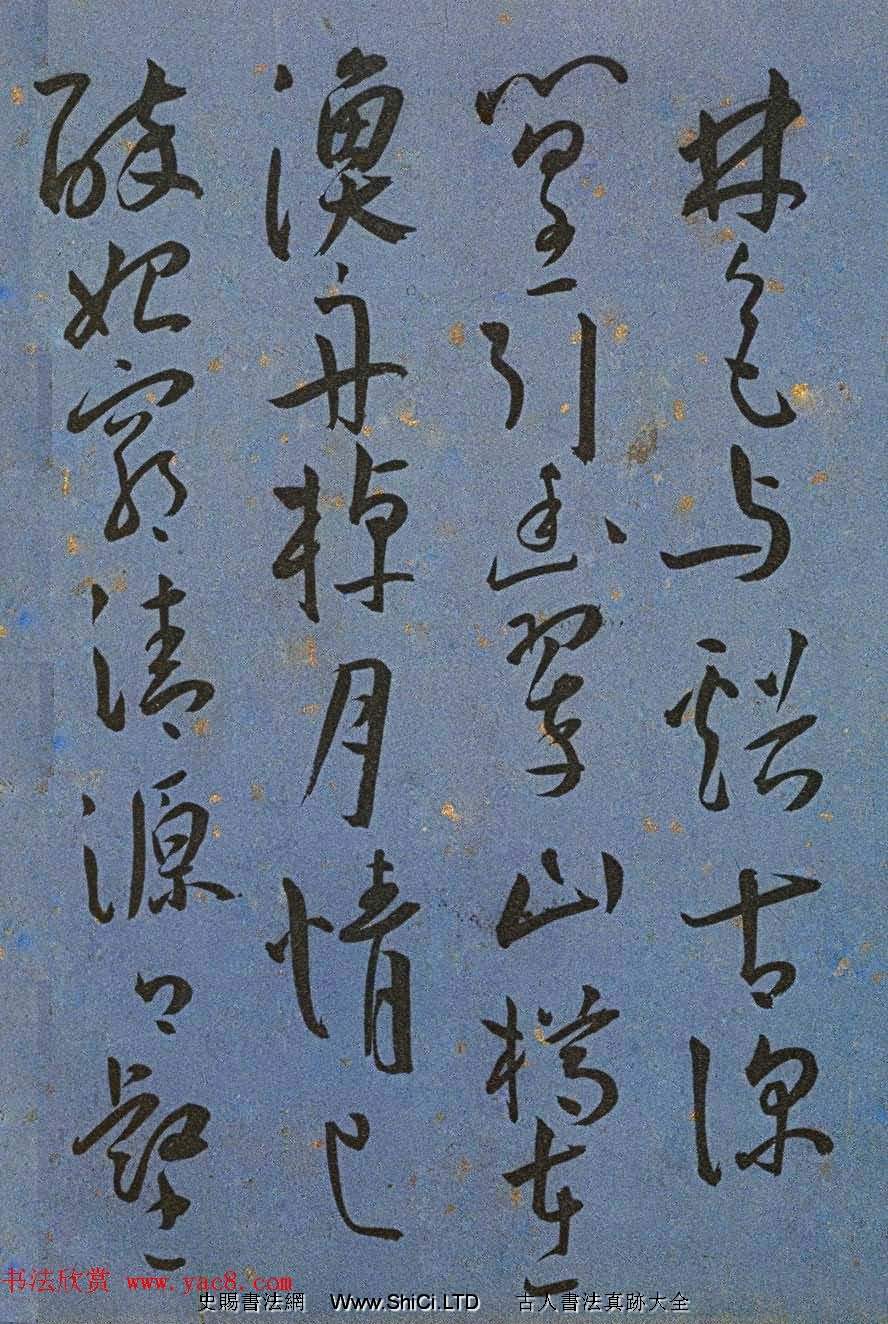 林色与谿古深
篁引幽翠山樽在
漁舟棹月情已
醉始窮清源口壑
书法欣赏 www.yac8.com
史賜書法網 Www.ShiCi.LTD 古人書法真跡大全